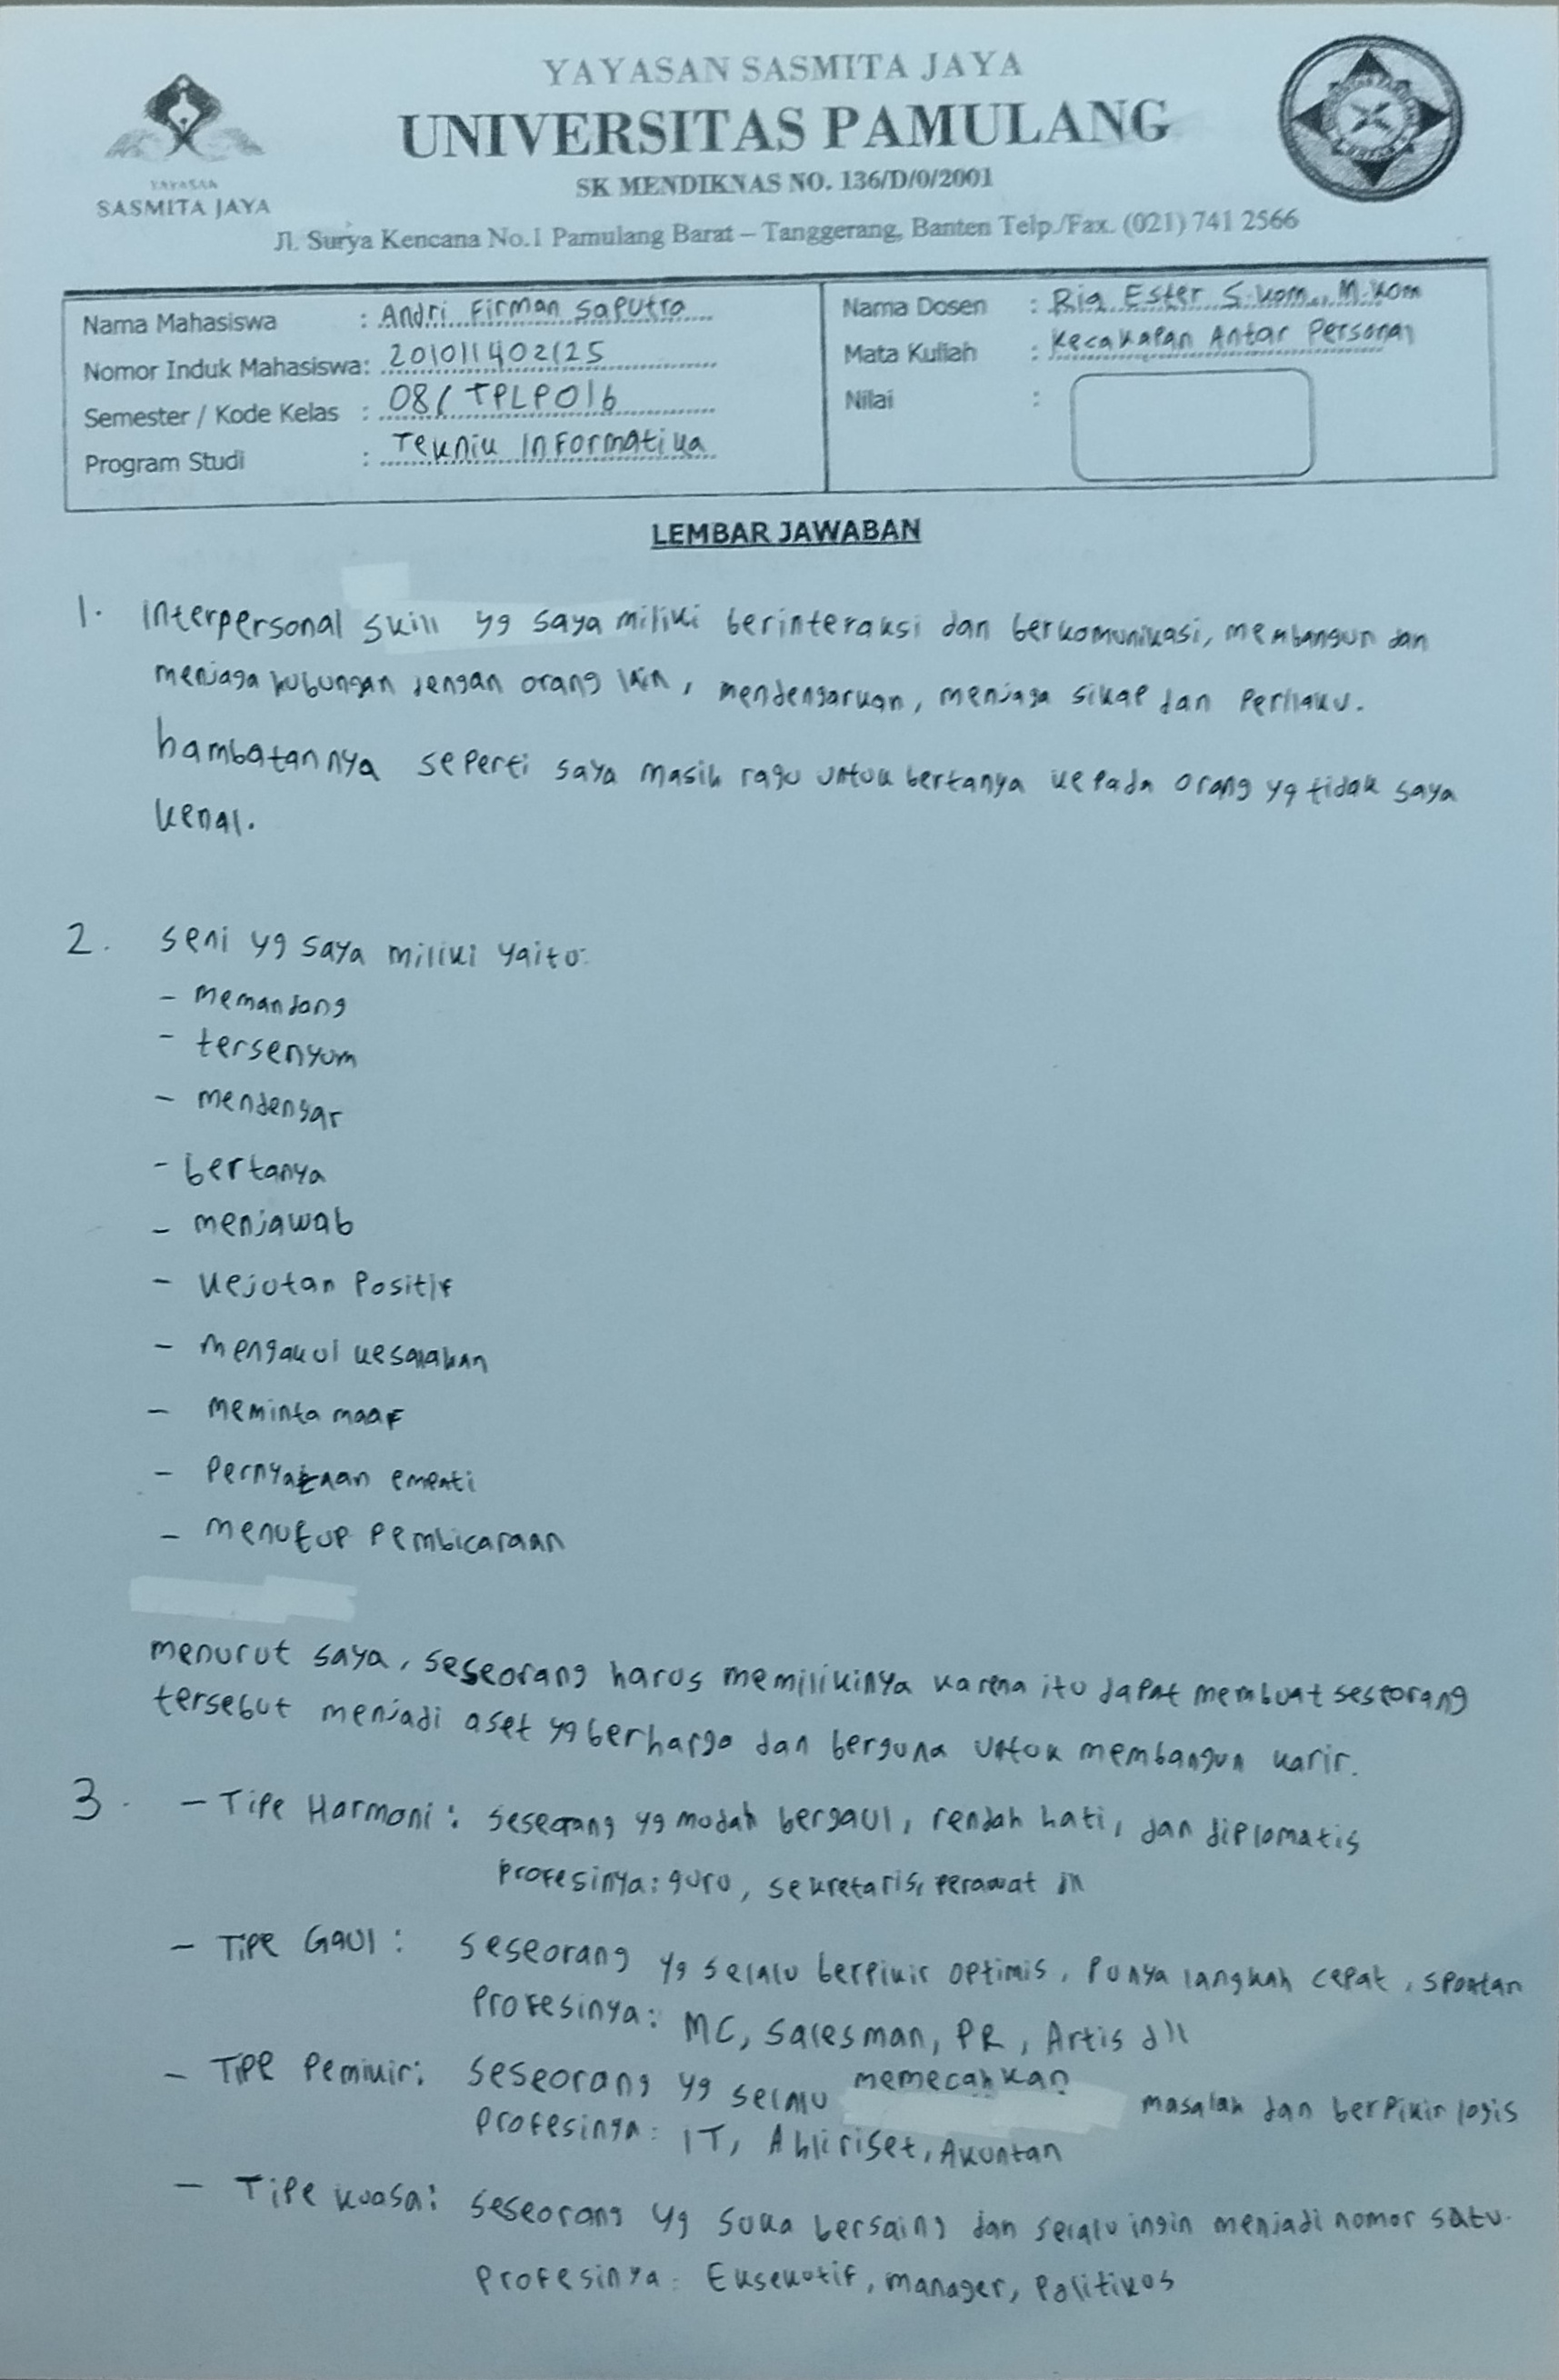 YAYASAN SASMITA JAYA
UNIVERSITAS PAMULANG
SK MENDIKNAS NO. 136/D/0/2001
YAYASAN
SASMITA JAYA
Jl. Surya Kencana No.1 Pamulang Barat – Tanggerang, Banten Telp./Fax. (021) 741 2566
Nama Mahasiswa : Andri Firman Saputra
Nomor Induk Mahasiswa: 201011402125
Semester / Kode Kelas : 08/ TPLP016
Program Studi : Teknik Informatika
Nama Dosen : Ria Ester S.kom., M.kom
Mata Kuliah : Kecakapan Antar Personal
Nilai :
LEMBAR JAWABAN
1. Interpersonal skill yg saya miliki berinteraksi dan berkomunikasi, membangun dan
menjaga hubungan dengan orang lain, mendengarkan, menjaga sikap dan perilaku.
hambatannya seperti saya masih ragu untuk bertanya kepada orang yg tidak saya
kenal.
2. seni yg saya miliki yaitu:
- memandang
- tersenyum
- mendengar
- bertanya
- menjawab
- kejutan positif
- mengakui kesalahan
- meminta maaf
- Pernyataan empati
- menutup pembicaraan
menurut saya, seseorang harus memilikinya karena itu dapat membuat seseorang
tersebut menjadi aset yg berharga dan berguna untuk membangun karir.
3. - Tipe Harmoni : seseorang yg mudah bergaul, rendah hati, dan diplomatis
Profesinya : guru, sekretaris, perawat dll
- Tipe Gaul : seseorang yg selalu berpikir optimis, punya langkah cepat, spontan
Profesinya : MC, Salesman, PR, Artis dll
- Tipe Pemikir : seseorang yg selalu memecahkan masalah dan berpikir logis
Profesinya : IT, Ahli riset, Akuntan
- Tipe kuasa : seseorang yg suka bersaing dan selalu ingin menjadi nomor satu.
Profesinya : Eksekutif, manager, Politikos